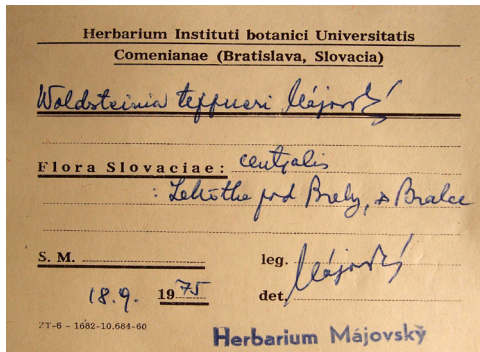 Herbarium Instituti botanici Universitatis
Comenianae (Bratislava, Slovacia)
Waldsteinia teppneri Májovský
Flora Slovaciae: centralis
: Lehôtka pod Brehy, Bralce
S. M.
leg. Májovský
18.9. 1975
det.
ZT-6 - 1682-10.684-60
Herbarium Májovský